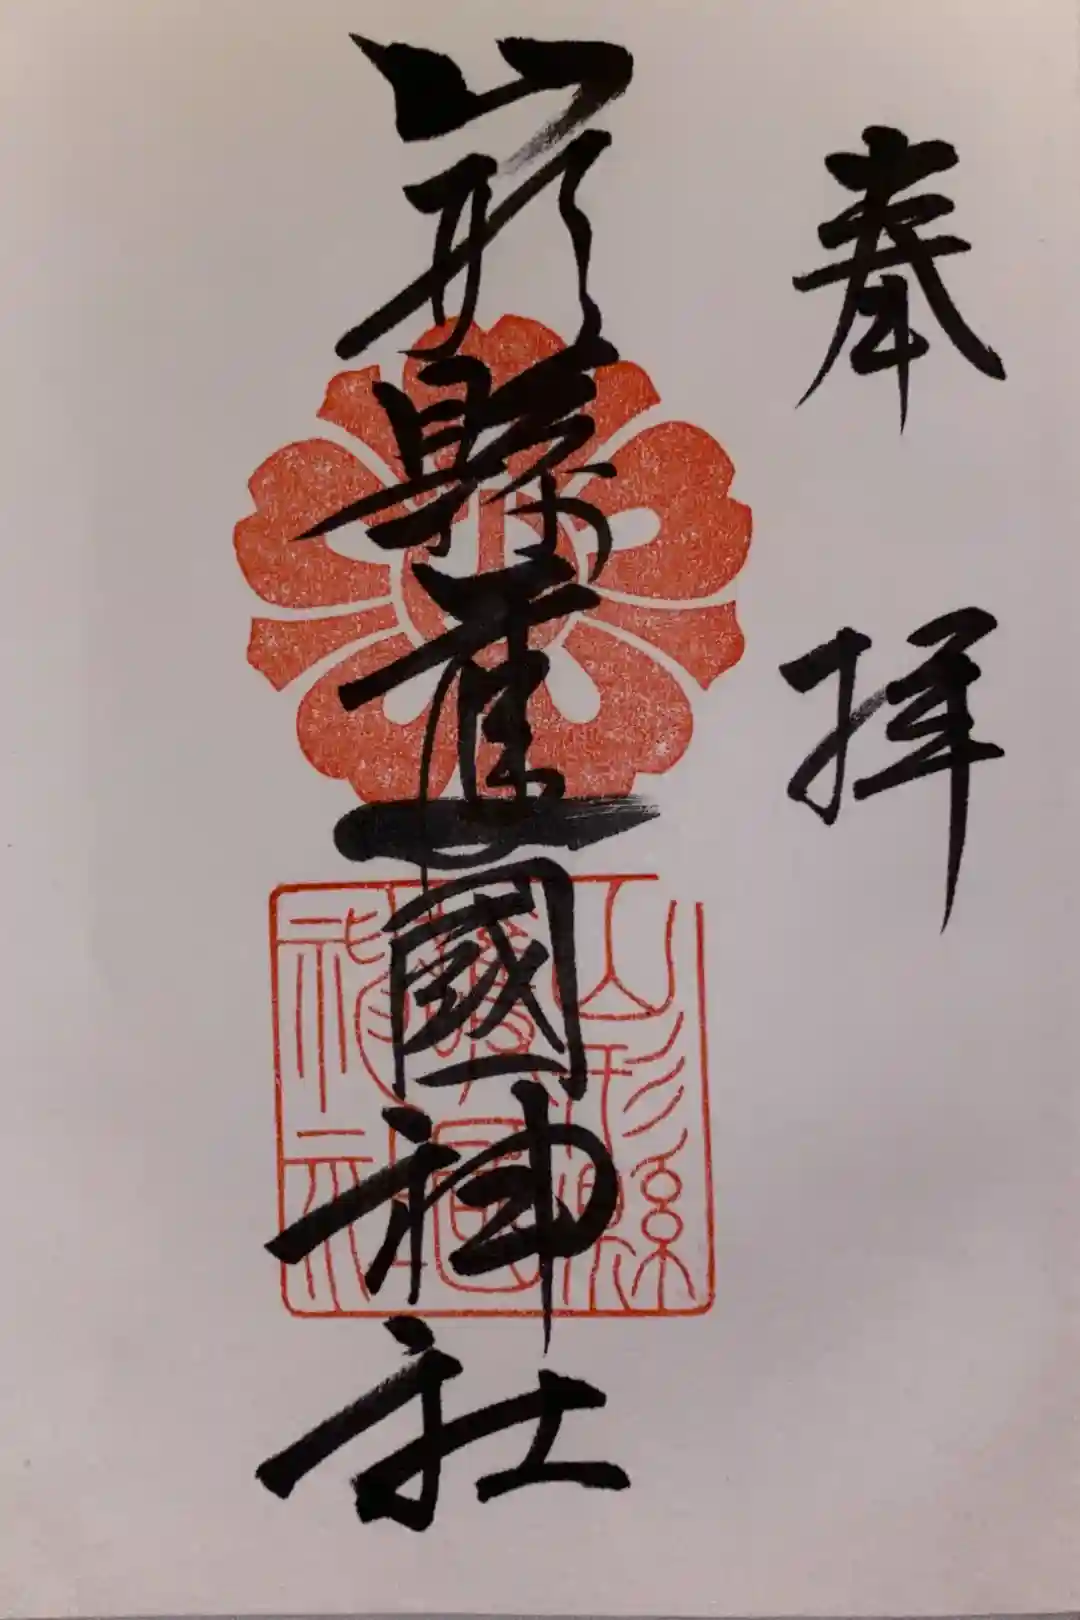 奉拝
山形縣護國神社
山形縣
護國
神社